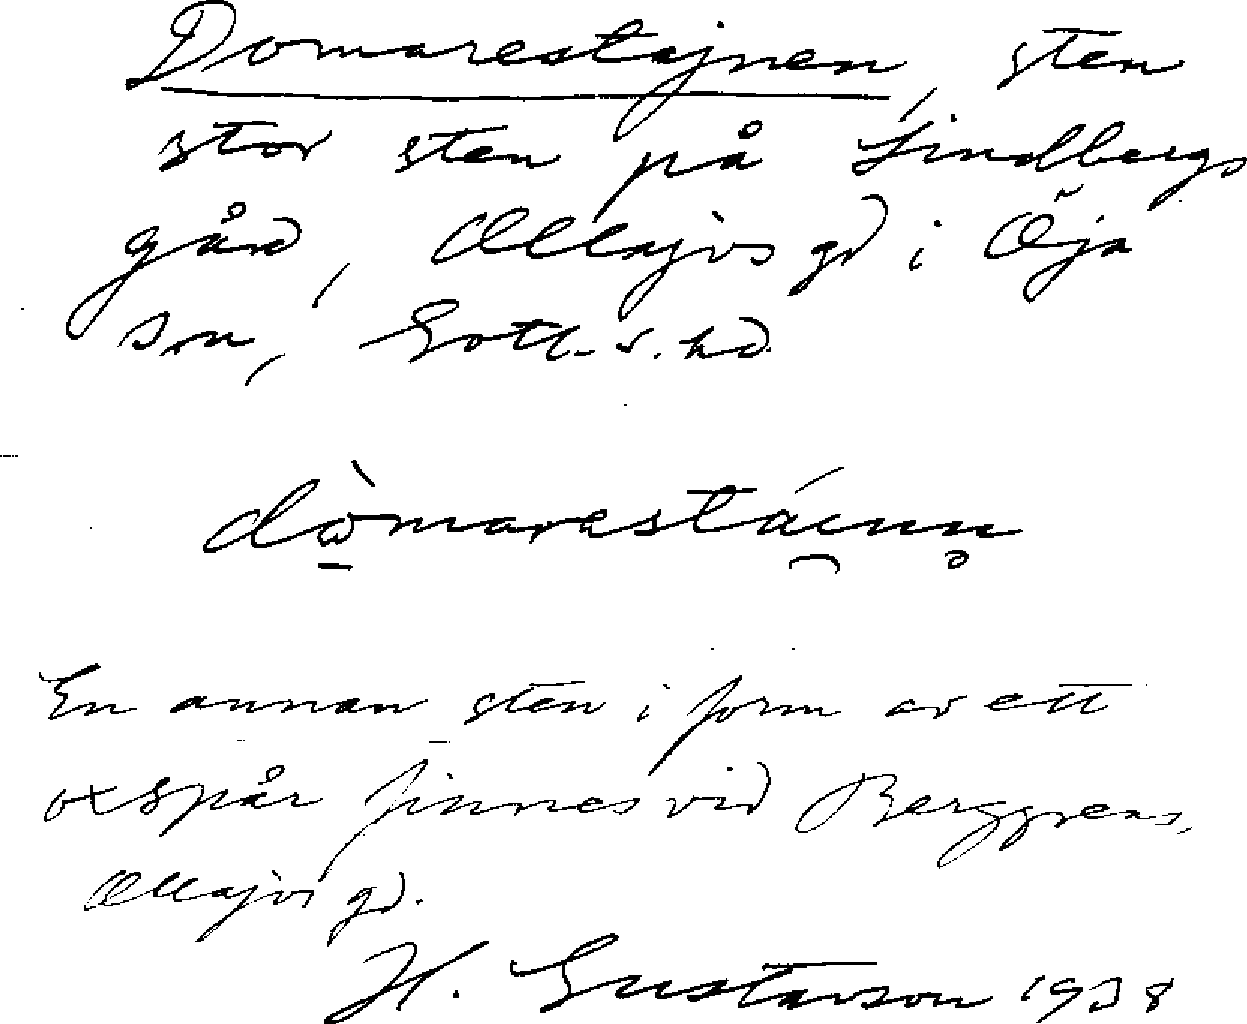 Domarestajnen, sten
stor sten på Lindbergs
gård, Ollajvs gd i Öja
sn, Gotl. s. hd.
dòmarastáinn
En annan sten i form av ett
oxspår finnes vid Berggrens,
Ollajvs gd.
H. Gustavson 1938